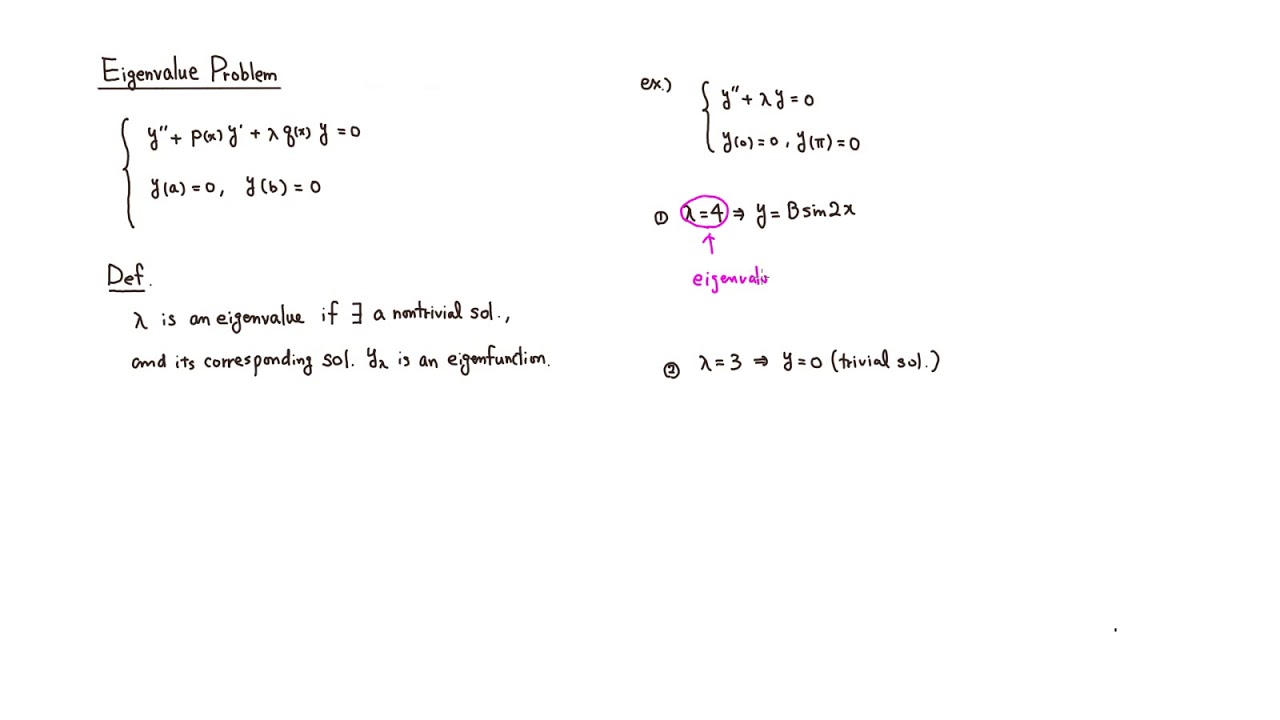 Eigenvalue Problem
y'' + p(x) y' + λ q(x) y = 0
y(a) = 0, y(b) = 0
Def.
λ is an eigenvalue if ∃ a nontrivial sol.,
and its corresponding sol. y_λ is an eigenfunction.
ex.)
y'' + λ y = 0
y(0) = 0, y(π) = 0
① λ = 4 ⇒ y = B sin 2x
↑
② λ = 3 ⇒ y = 0 (trivial sol.)